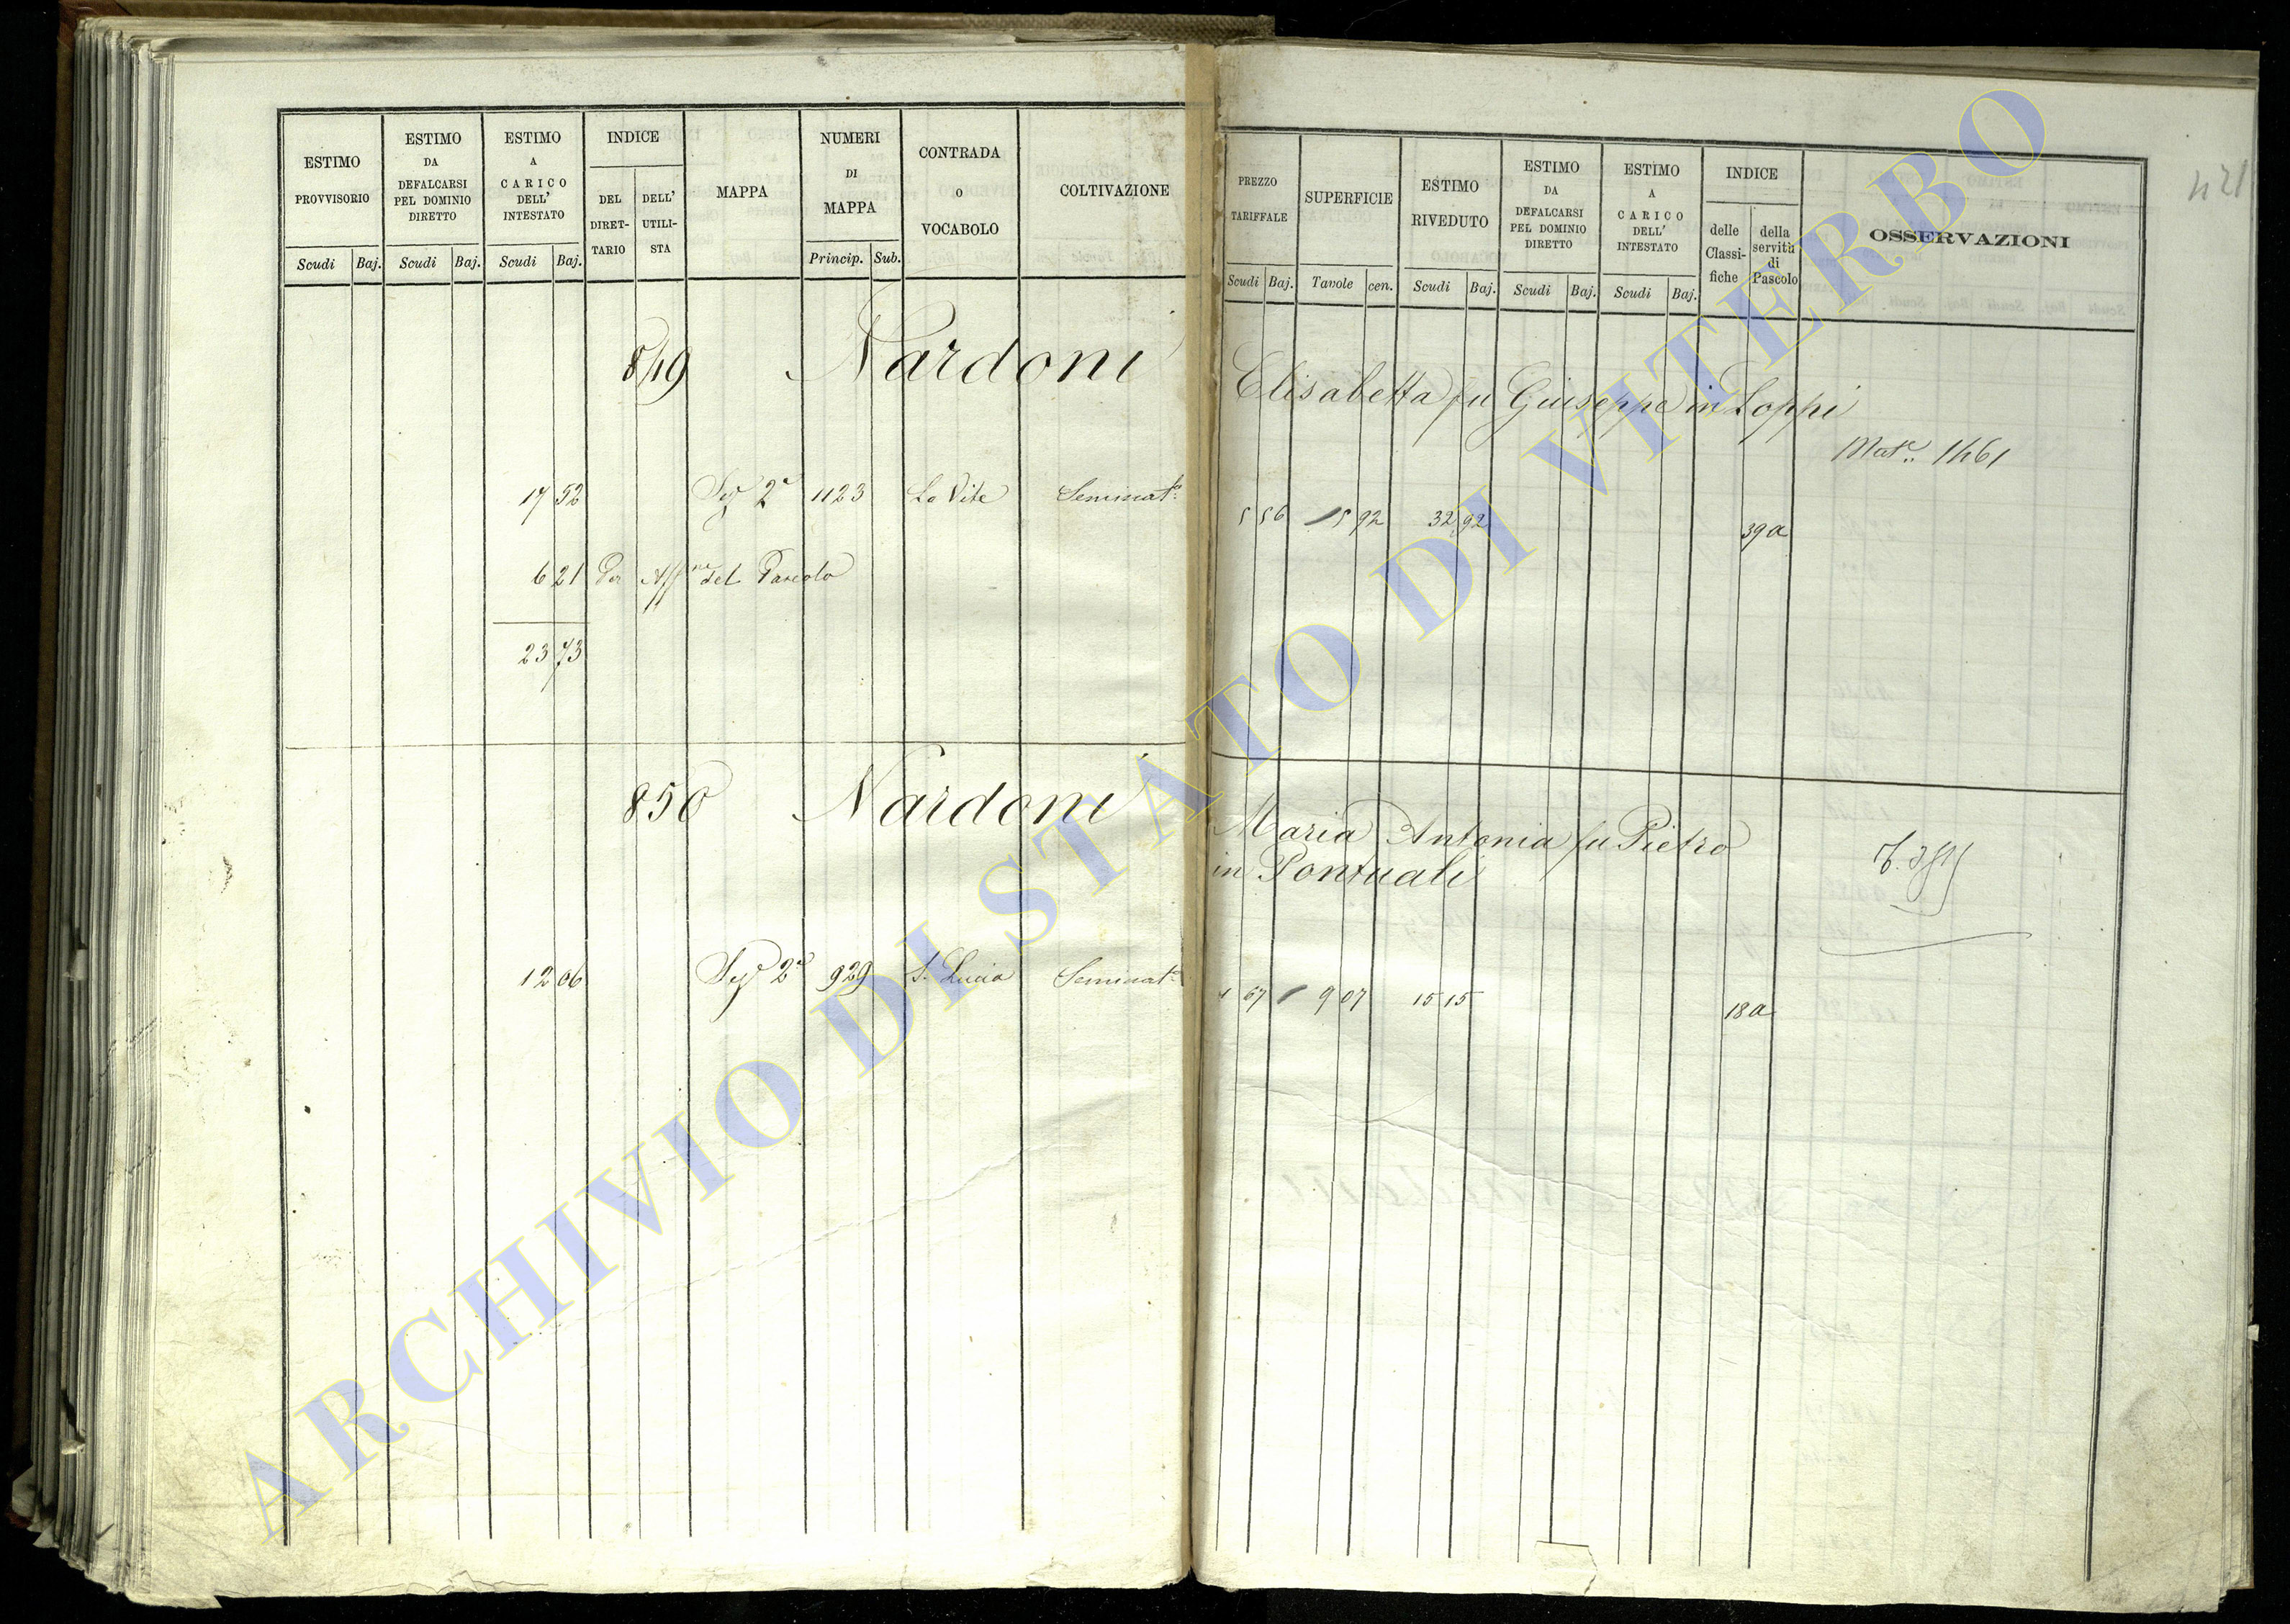 421
ESTIMO PROVVISORIO
Scudi Baj.
ESTIMO DA DEFALCARSI PEL DOMINIO DIRETTO
Scudi Baj.
ESTIMO A CARICO DELL' INTESTATO
Scudi Baj.
INDICE
DEL DIRET-TARIO
DELL' UTILI-STA
MAPPA
NUMERI DI MAPPA
Princip. Sub.
CONTRADA O VOCABOLO
COLTIVAZIONE
PREZZO TARIFFALE
Scudi Baj.
SUPERFICIE
Tavole cen.
ESTIMO RIVEDUTO
Scudi Baj.
ESTIMO DA DEFALCARSI PEL DOMINIO DIRETTO
Scudi Baj.
ESTIMO A CARICO DELL' INTESTATO
Scudi Baj.
INDICE
delle Classi-fiche
della servitù di Pascolo
OSSERVAZIONI
849 Nardoni Elisabetta fu Giuseppe in Loppi
1461
17 52 Sez 2a 1123 La Vite Seminato 5 56 5 92 32 92 39a
6 21 Per Aff.ne del Pascolo
23 73
850 Nardoni Maria Antonia fu Pietro
in Pontuali
12 06 Sez 2a 929 S. Lucia Seminato 1 67 9 07 15 15 18a
ARCHIVIO DI STATO DI VITERBO